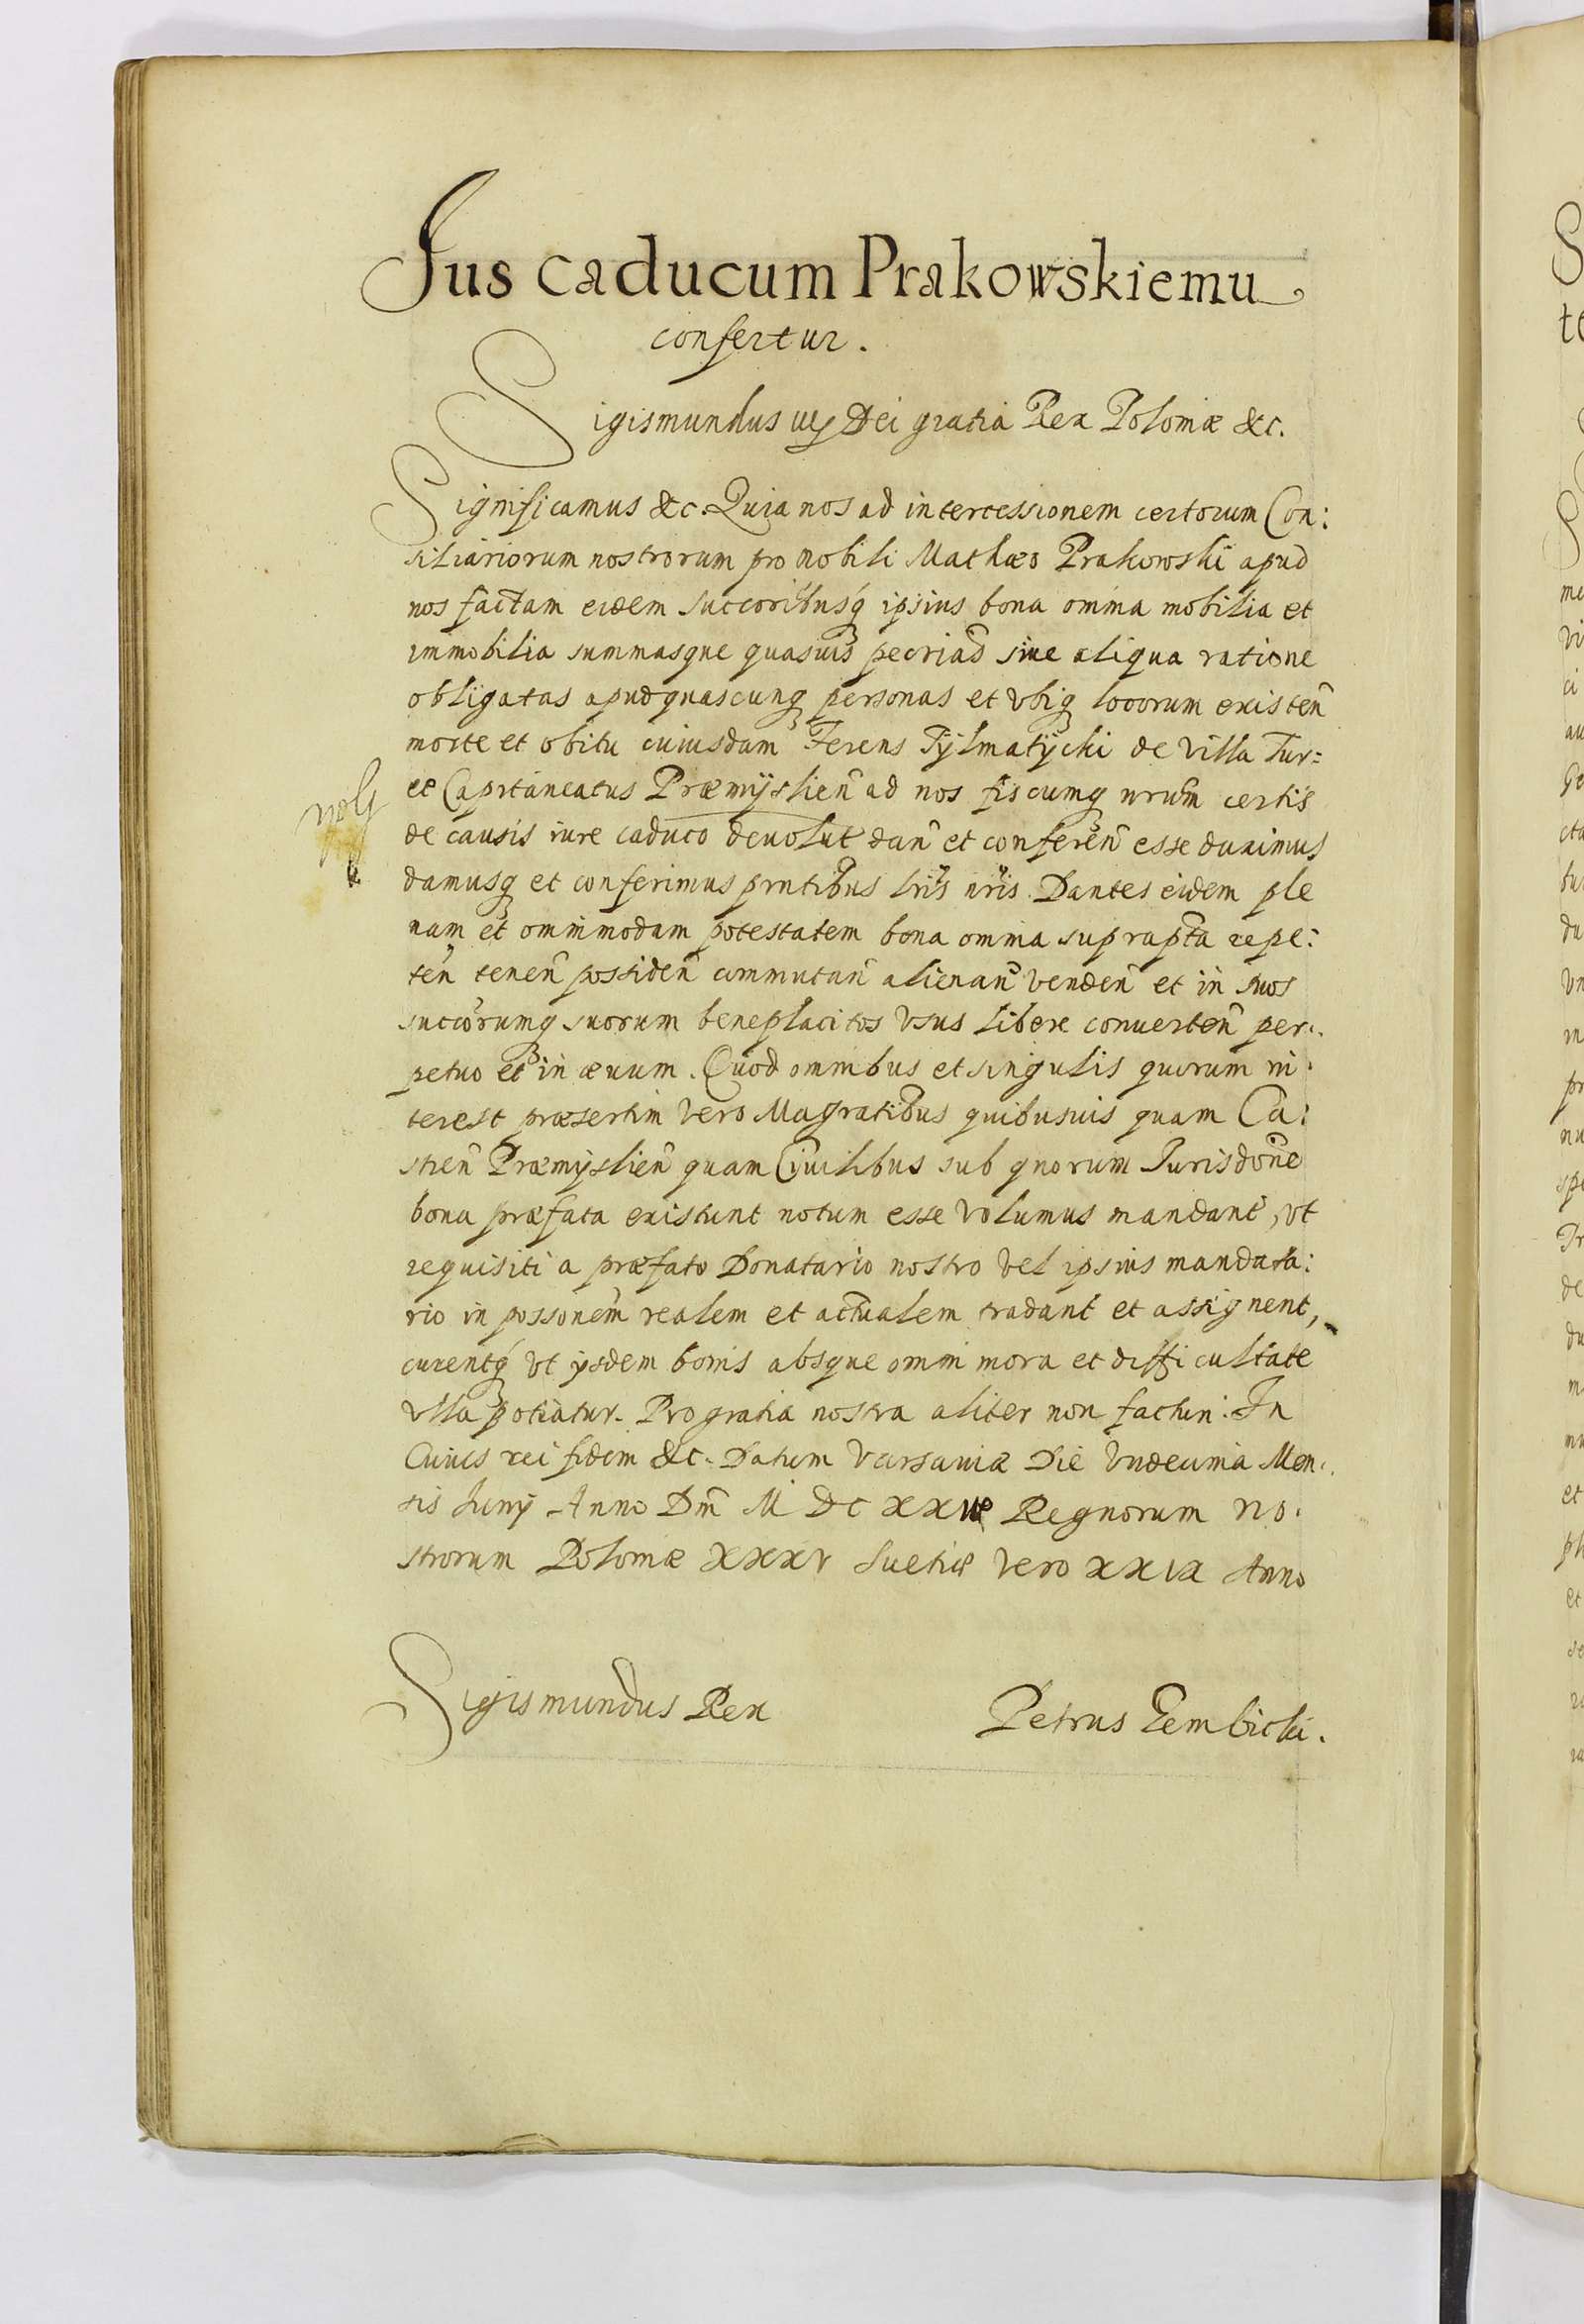 Jus caducum Prakowskiemu
confertur.
Sigismundus iii Dei gratia Rex Poloniæ &c.
Significamus &c. Quia nos ad intercessionem certorum Con:
siliariorum nostrorum pro nobili Mathæo Prakowski apud
nos factam eidem succoribusq ipsius bona omnia mobilia et
immobilia summasque quasuis pecrias siue aliqua ratione
obligatas apud quascunq personas et vbiq locorum existen
morte et obitu cuiusdam Ferens Tylmatÿcki de villa Tur=
ee Capitaneatus Præmÿslien ad nos fiscumq nrum certis
de causis iure caduco deuolut dan et conferen esse duximus
damusq et conferimus pntibus lris nris. Dantes eidem ple
nam et omnimodam potestatem bona omnia suprapta repe:
ten tenen possiden commutan alienan venden et in suos
succorumq suorum beneplacitos vsus libere conuerten per:
petuo et in æuum. Quod omnibus et singulis quorum in:
terest præsertim vero Magratibus quibusuis quam Ca:
stren Præmÿslien quam Ciuilibus sub quorum Jurisdone
bona præfata existunt notum esse volumus mandant, vt
requisiti a præfato Donatario nostro vel ipsius mandata:
rio in possonem realem et actualem tradant et assignent,
curentq vt ysdem bonis absque omni mora et difficultate
vlla potiatur. Pro gratia nostra aliter non facturi. In
Cuius rei fidem &c. Datum Varsauiæ Die Vndecima Men:
sis Junij Anno Dni M DC XX Regnorum no:
strorum Poloniæ XXXV Suetiæ vero XXIX Anno
Sigismundus Rex
Petrus Gembicki.